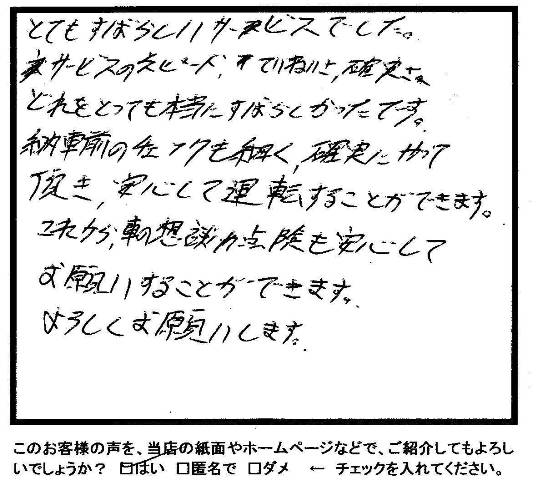 とてもすばらしいサービスでした。
サービスのスピード、ていねいさ、確実さ、
どれをとっても本当にすばらしかったです。
納車前のチェックも細く、確実にやって
頂き、安心して運転することができます。
これから、車の想談か点険も安心して
お願いすることができます。
よろしくお願いします。
このお客様の声を、当店の紙面やホームページなどで、ご紹介してもよろし
いでしょうか? 口はい 口匿名で 口ダメ ← チェックを入れてください。